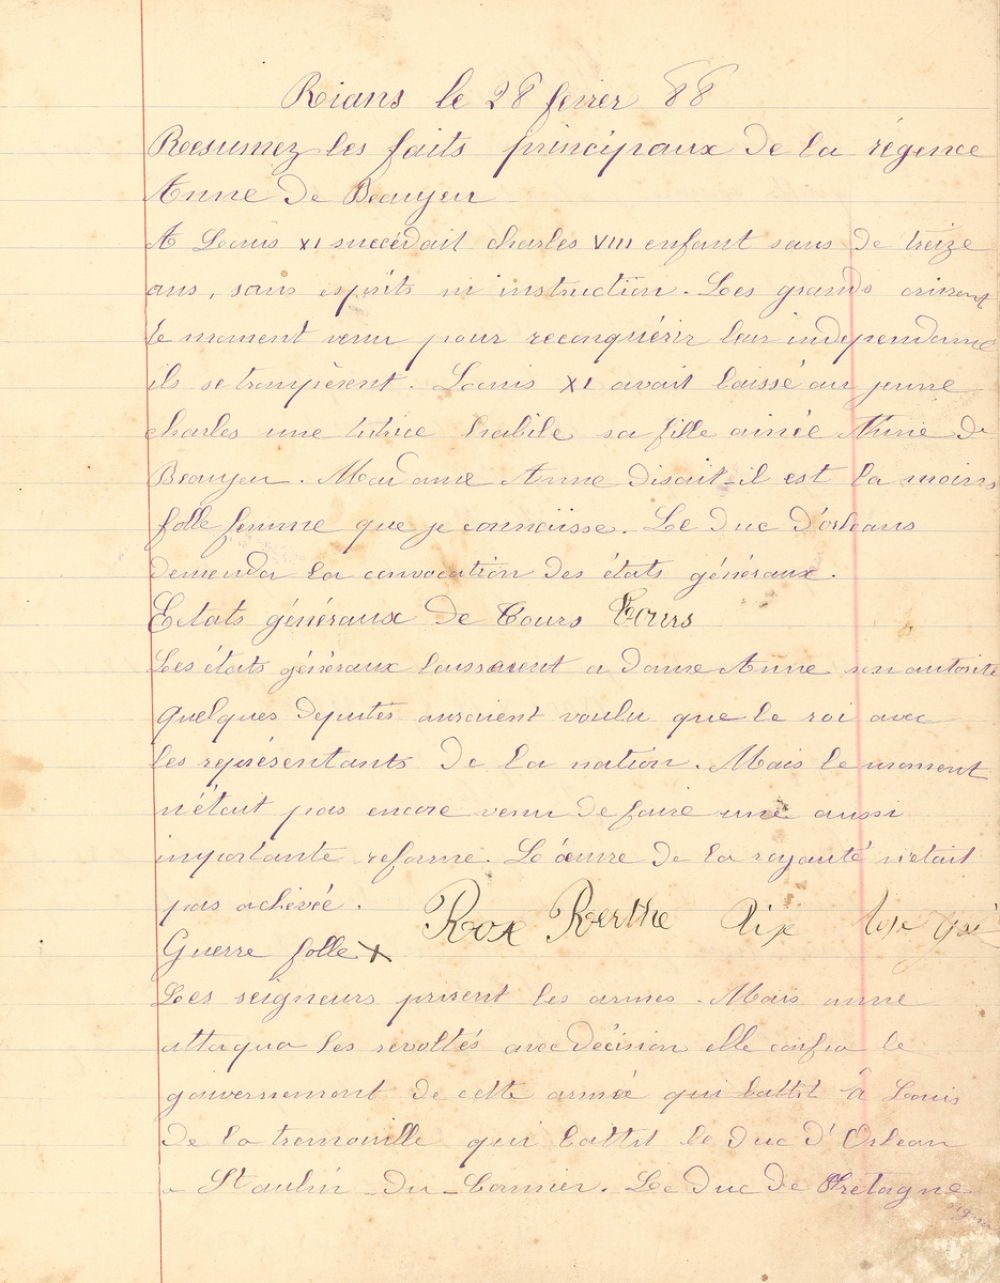 Rians le 28 fevrer 88
Resumez les faits principaux de la régence
Anne de Beaujeu
A Louis XI succédait charles VIII enfant sans de treize
ans, sans esprits ni instruction. Les grands crirent
le moment venu pour reconquérir leur independance
ils se trompèrent. Louis XI avait laissé au jeune
charles une tutrice habile sa fille ainée Anne de
Beaujeu. Madame Anne disait-il est la moins
folle femme que je connaisse. Le Duc d'orleans
demenda la convocation des états généraux.
Etats généraux de Tours Tours
Les états généraux laisserent a donne Anne son autorite
quelques deputés auraient voulu que le roi avec
les représentants de la nation. Mais le moment
n'était pas encore venu de faire une aussi
importante reforme. L'œuvre de la royauté n'etait
pas achevée.
Rose Berthe Aix
Guerre folle x
Les seigneurs prirent les armes. Mais anne
attaqua les revoltés avec décision elle confia le
gouvernement de cette armée qui battit à Louis
de la tremouille qui battit le duc d'Orlean
a St aubin-du-Cormier. Le Duc de Bretagne
signa